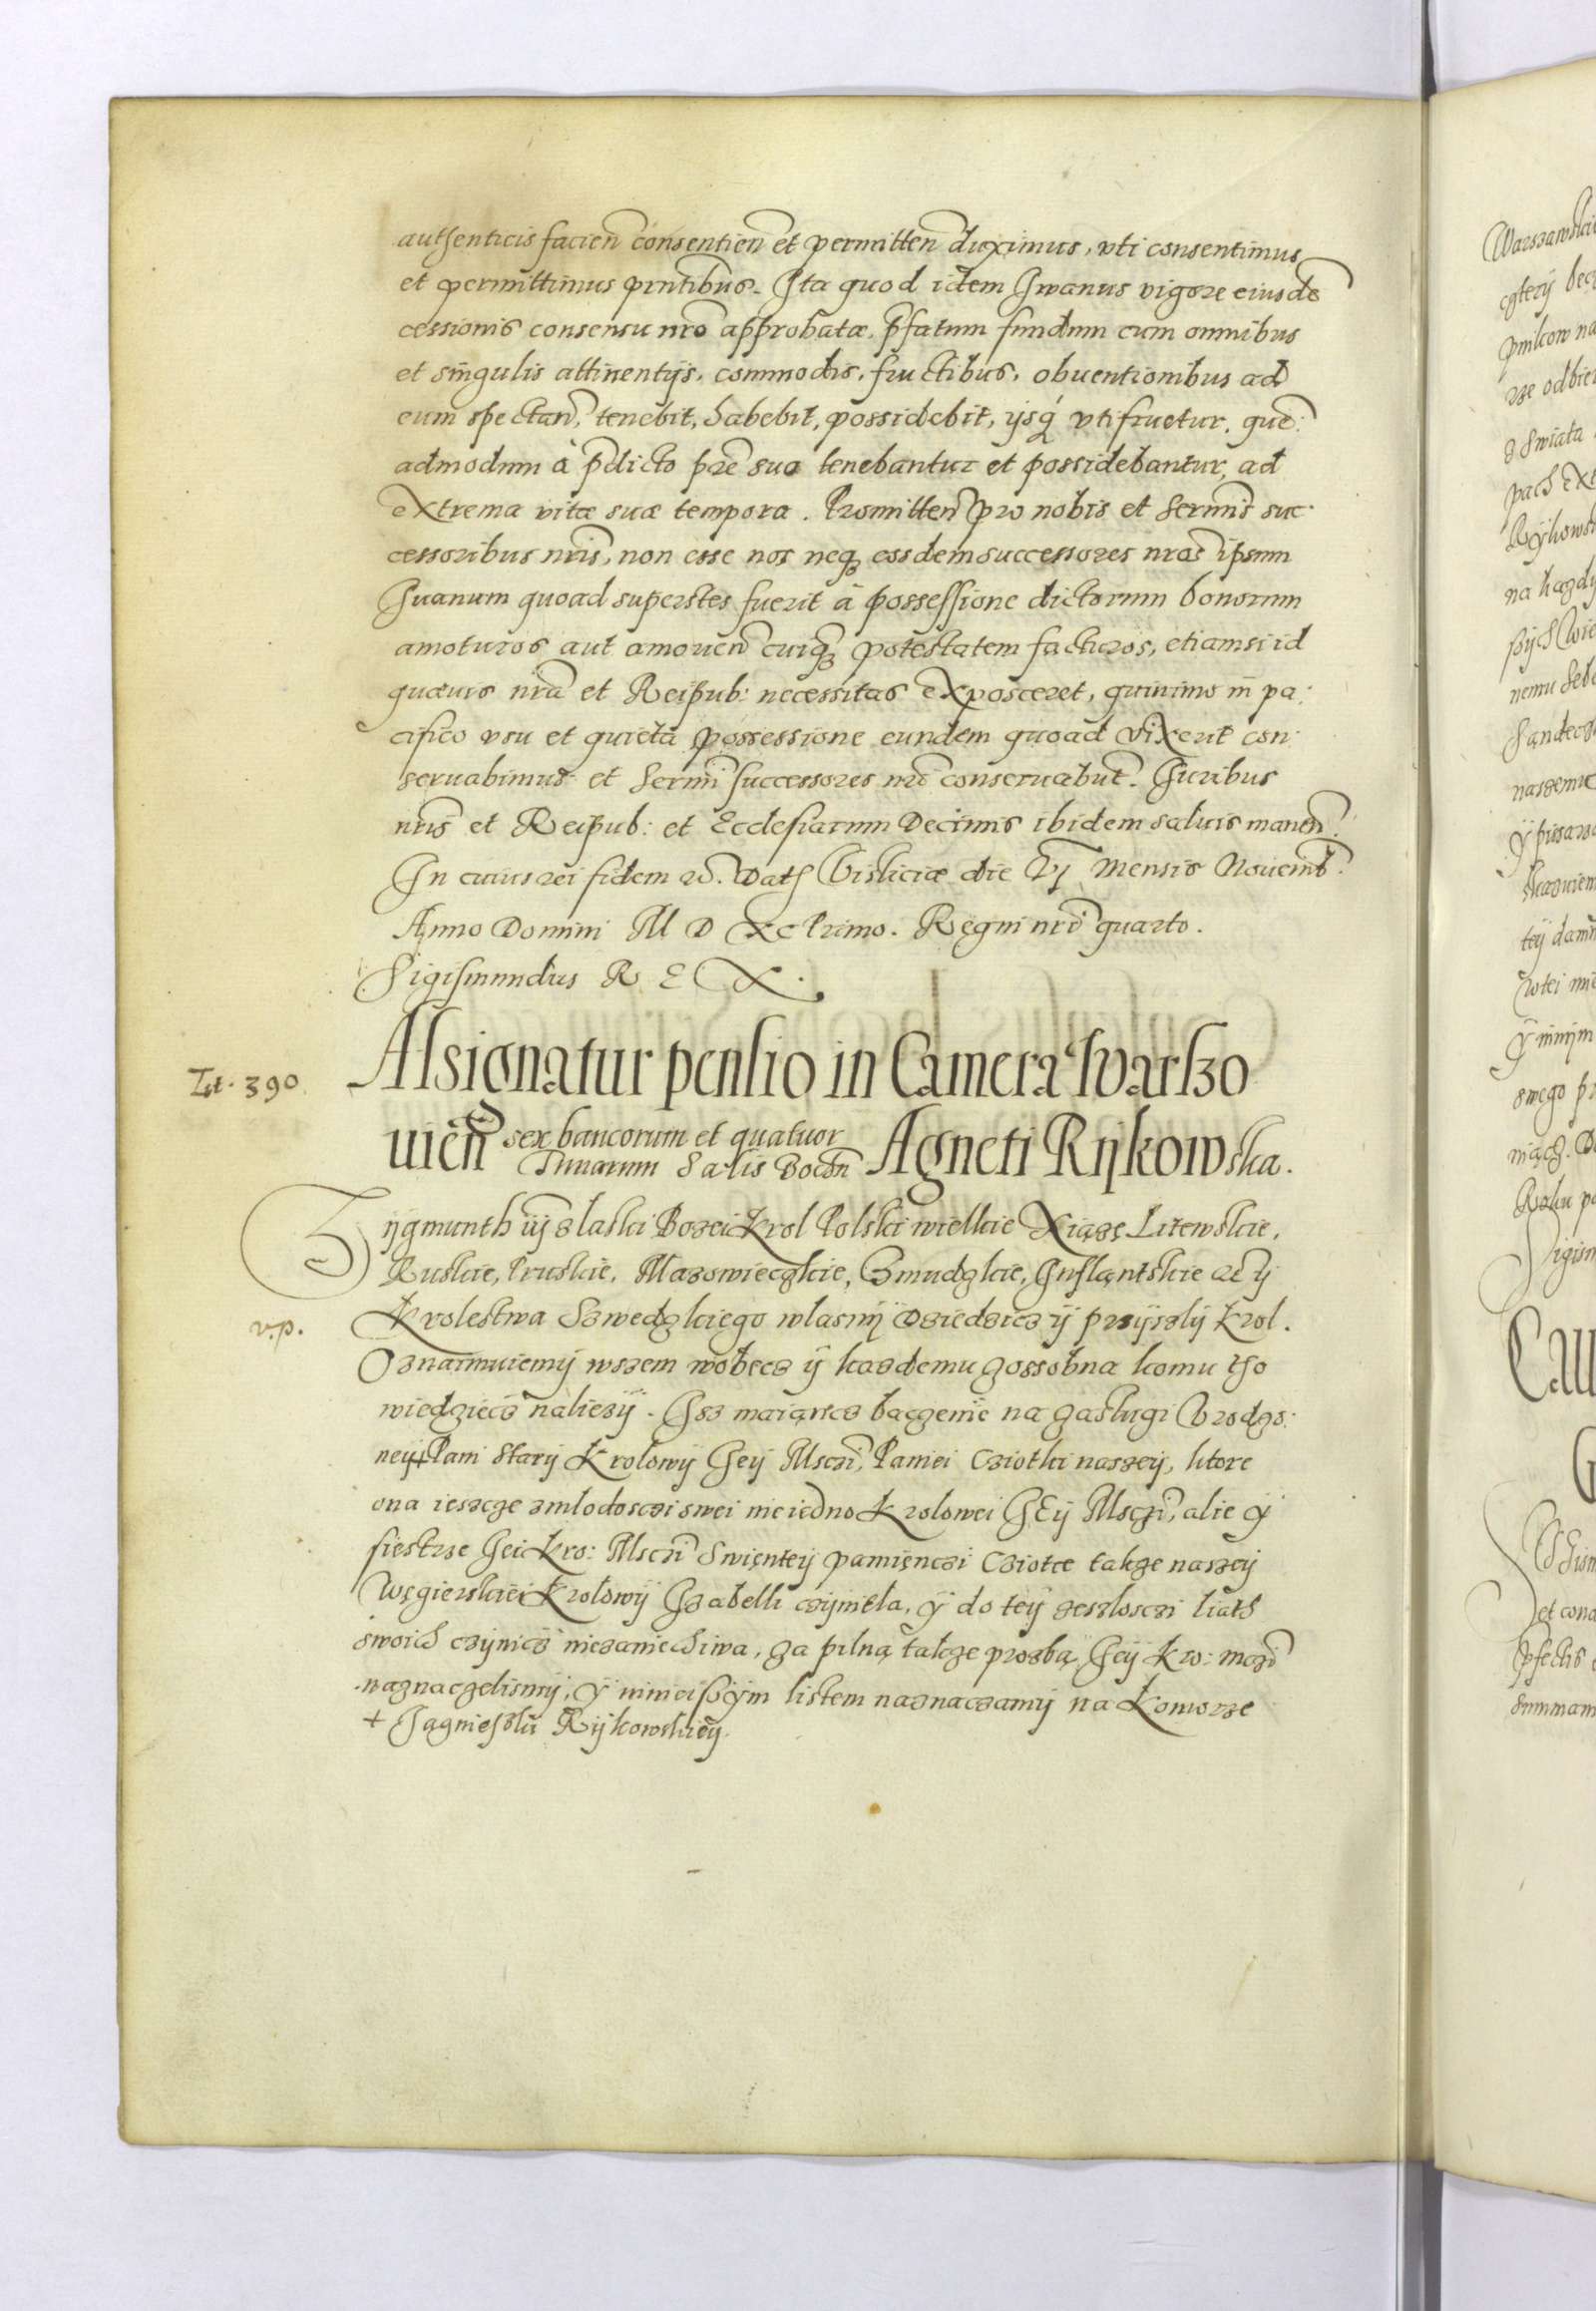 authenticis facien consentien et permitten duximus, vti consentimus
et permittimus pntibus. Ita quod idem Iwanus vigore eiusde
cessionis consensu nro approbatæ, pfatum fundum cum omnibus
et singulis attinentijs, commodis, fructibus, obuentionibus ad
eum spectan, tenebit, habebit, possidebit, ijsq vtifruetur, que:
admodum à pdicto pre suo tenebantur et possidebantur, ad
extrema vitæ suæ tempora. Promitten pro nobis et Sermis suc:
cessoribus nris, non esse nos neq eosdem successores nros ipsum
Iuanum quoad superstes fuerit à possessione dictorum bonorum
amoturos aut amouen cuiq potestatem facturos, etiamsi id
quæuis nra et Reipub: necessitas exposceret, quinimo in pa:
cifico vsu et quieta possessione eundem quoad vixerit con:
seruabimus et Sermi successores nri conseruabut. Iuribus
nris et Reipub: et Ecclesiarum Decimis ibidem saluis manen.
In cuius rei fidem &. Dath Visliciæ die VI Mensis Nouemb.
Anno Domini M D XC Primo. Regni nri quarto.
Sigismundus R E X.
Assignatur pensio in Camera Warszo
Lit. 390
uien sex bancorum et quatuor Agneti Rijkowska.
Tunarum Salis Bochn
Zijgmunth iij z laski Bozei Krol Polski wielkie Xiąze Litewskie,
Ruskie, Pruskie, Mazowieczkie, Zmudzkie, Inflantskie &c ij
v.p.
Krolestwa Szwedzkiego wlasnij Dziedzicz ij przijszlij Krol.
Oznaimuiemij wszem wobecz ij kazdemu zossobna komu tho
wiedziecz nalieżij. Isz maiancz baczenie na zaslugi Vrodzo:
neij + Pani starij Krolowij Ieij Msczi, Paniei Cziotki naszeij, ktore
ona ieszcze zmlodosczi swei nie iedno Krolowei IEij Msczi, alie ij
siestrze Iei Kro: Msczi Swiętej pamięnczi Cziotce takze naszeij
Węgierskiei Krolowij Izabelli czijniela, ij do teij zeszlosczi liath
swoich czijnicz niezaniechiwa, za pilną takze prozbą Ieij Kro: mczi
naznaczelismij, ij ninieiszijm listem naznaczamij na Komorze
+ Iagnieszki Rijkowskieij.